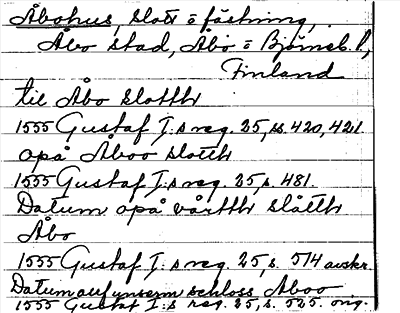 Åbohus, slott o fästning,
Åbo stad, Åbo o Björneb. l,
Finland
til Åbo slotth
1555 Gustaf I:s reg. 25, ss. 420, 421.
opå Åboo slotth
1555 Gustaf I:s reg. 25, s. 481.
Datum opå vårtth slåtth
Åbo
1555 Gustaf I:s reg. 25, s. 514 avskr.
Datum auf unserm schloss Aboo
1555 Gustaf I:s reg. 25, s. 525. orig.